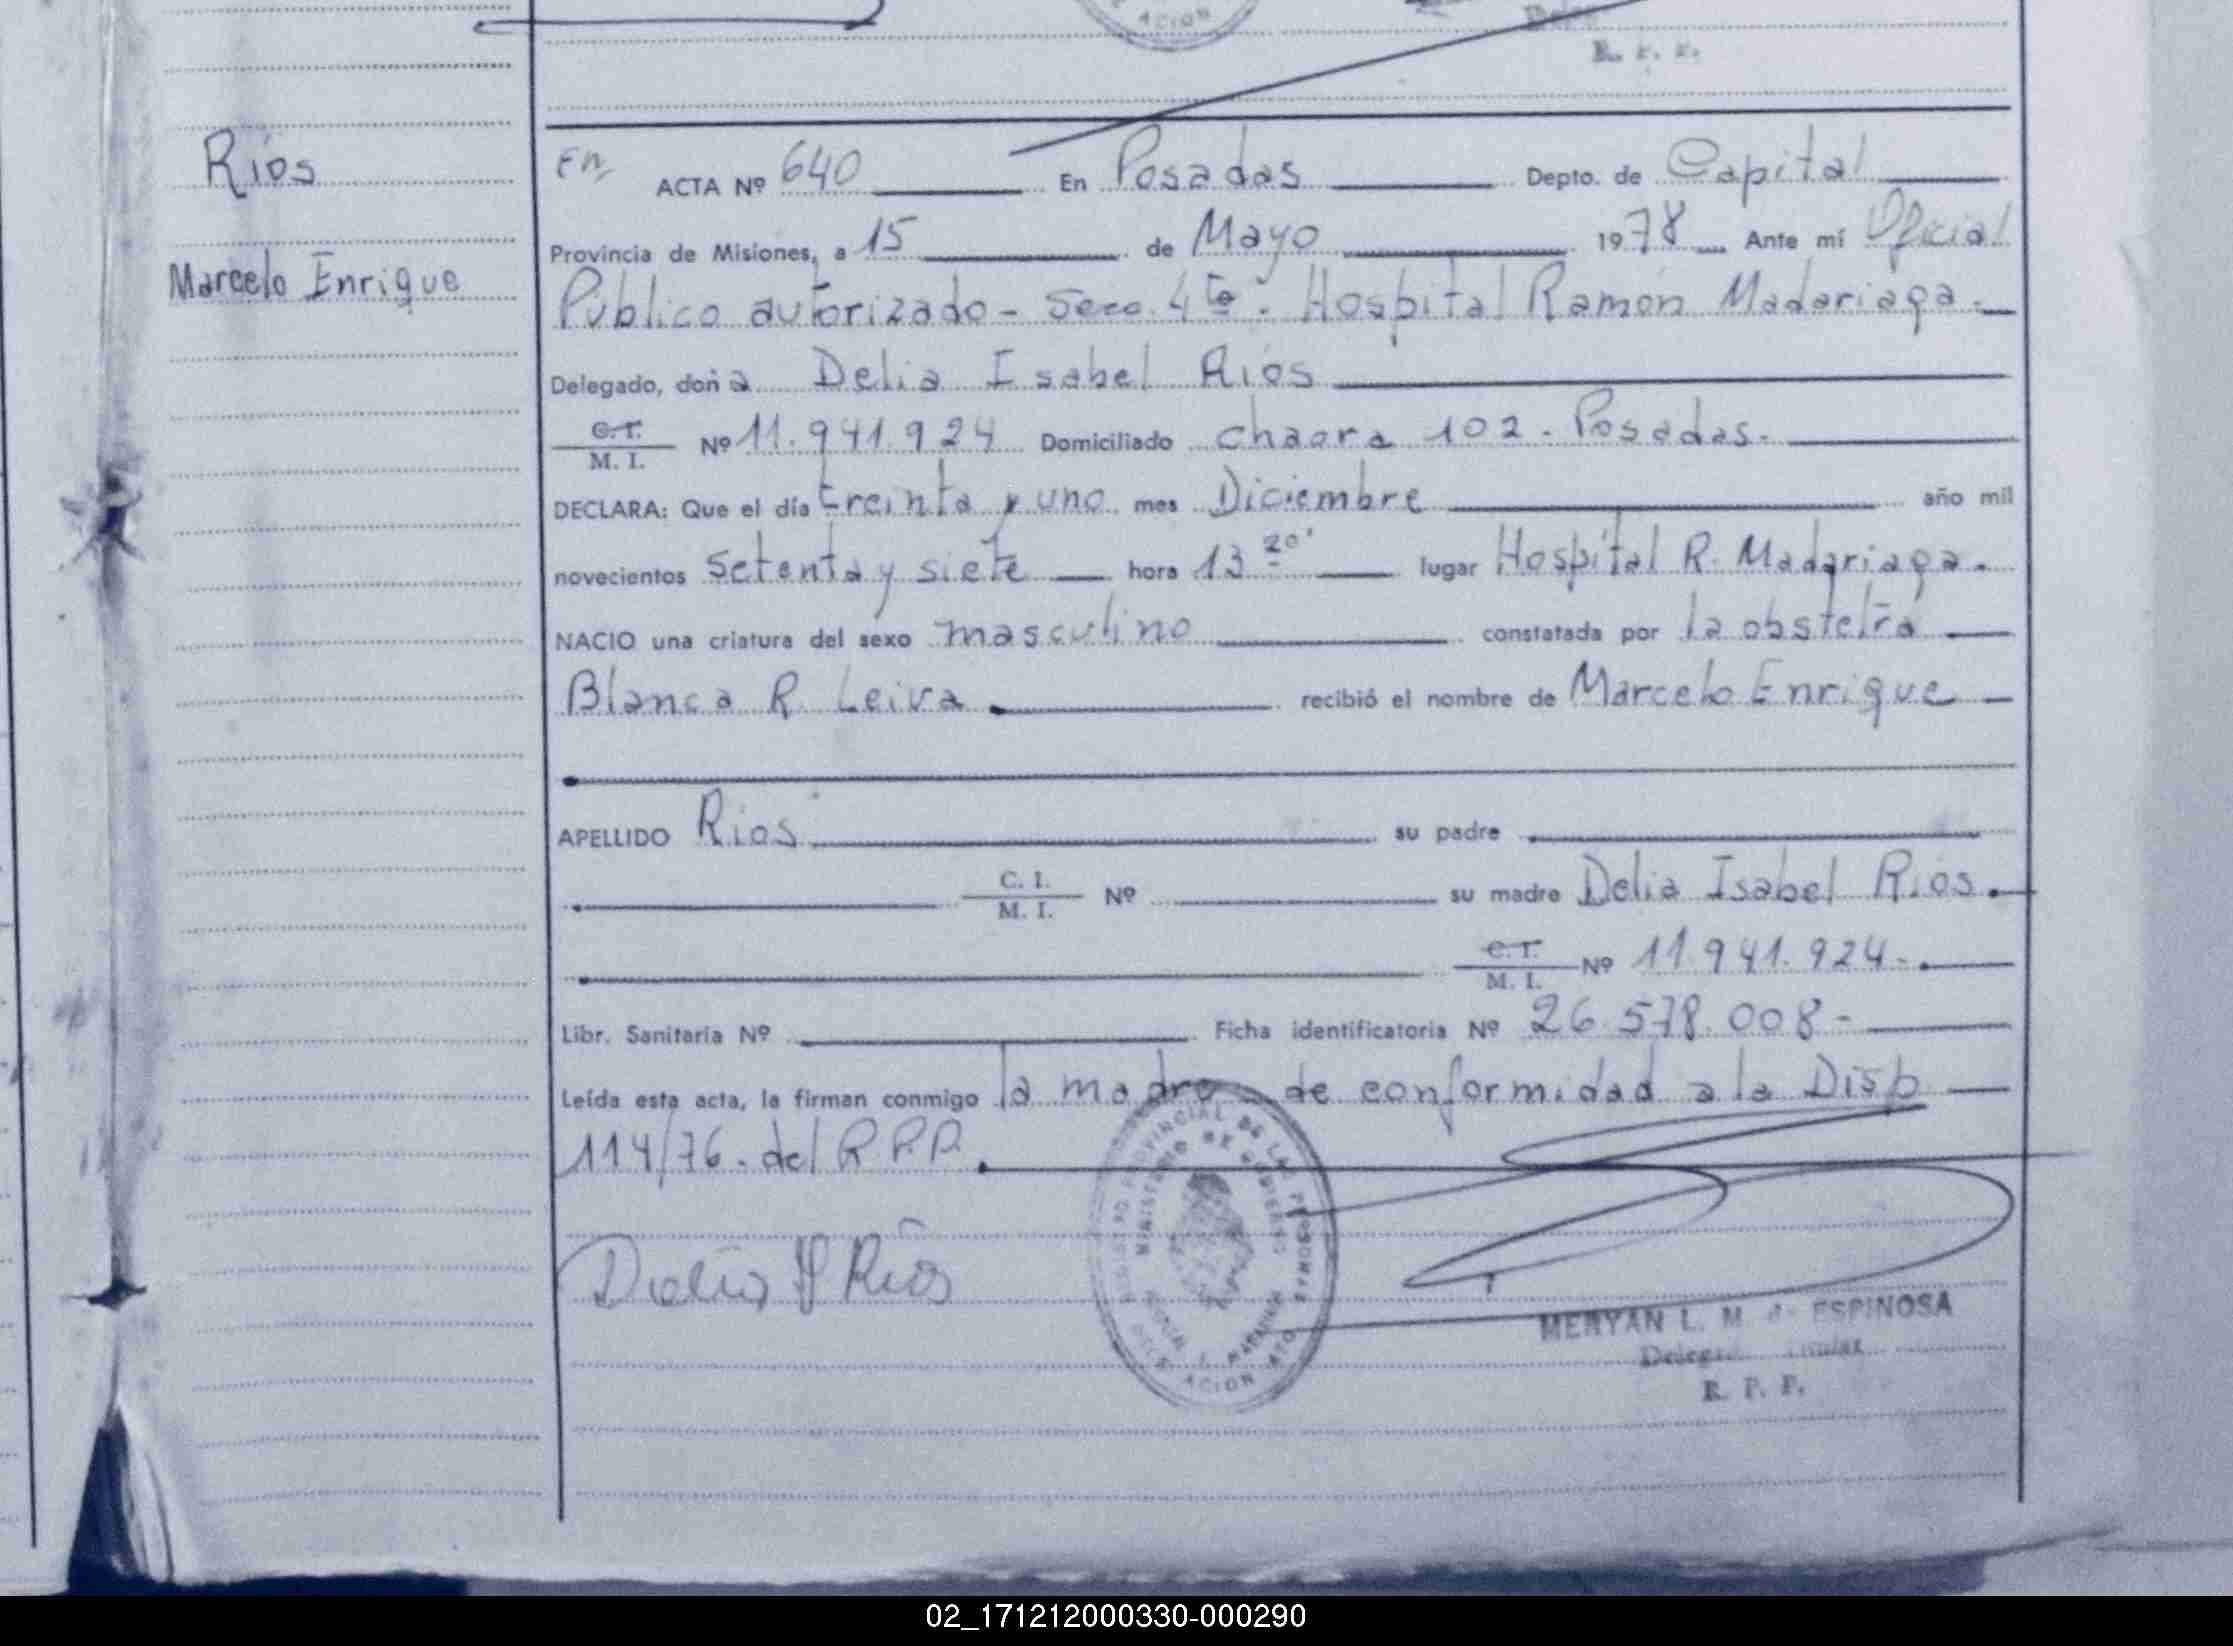 ACION
R. P. P.
Ríos
Marcelo Enrique
ACTA Nº 640 En Posadas Depto. de Capital
Provincia de Misiones, a 15 de Mayo 1978 Ante mí Oficial
Público autorizado - Secc. 4ta - Hospital Ramón Madariaga.
Delegado, doña Delia Isabel Ríos
C.I. M. I. Nº 11.941.924 Domiciliado chacra 102 - Posadas.
DECLARA: Que el día treinta y uno mes Diciembre año mil
novecientos setenta y siete hora 13 20' lugar Hospital R. Madariaga.
NACIO una criatura del sexo masculino constatada por la obstetra
Blanca R. Leiva recibió el nombre de Marcelo Enrique
APELLIDO Ríos su padre
C. I. M. I. Nº su madre Delia Isabel Ríos.
C.I. M. I. Nº 11.941.924.
Libr. Sanitaria Nº Ficha identificatoria Nº 26.578.008-
Leída esta acta, la firman conmigo la madre de conformidad a la Disp
114/76. del R.P.P.
REGISTRO PROVINCIAL DE LAS PERSONAS
MINISTERIO DE GOBIERNO
Delia I Ríos
MERYAN L. M. de ESPINOSA
R. P. P.
02_171212000330-000290